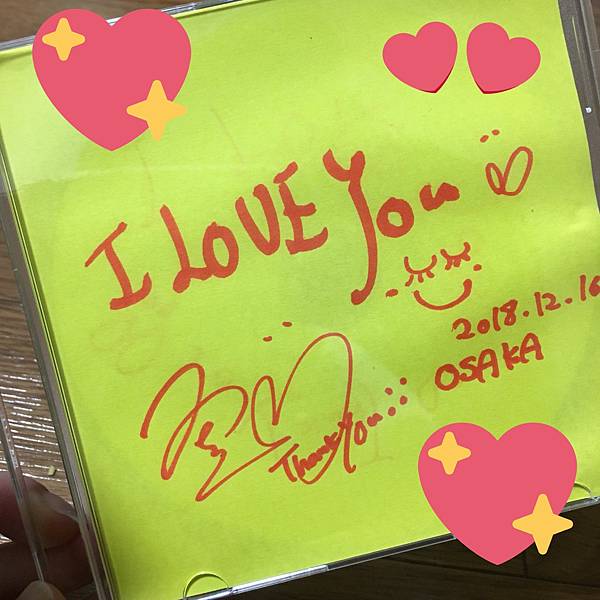 I LOVE You
2018.12.16
OSAKA
Thank You